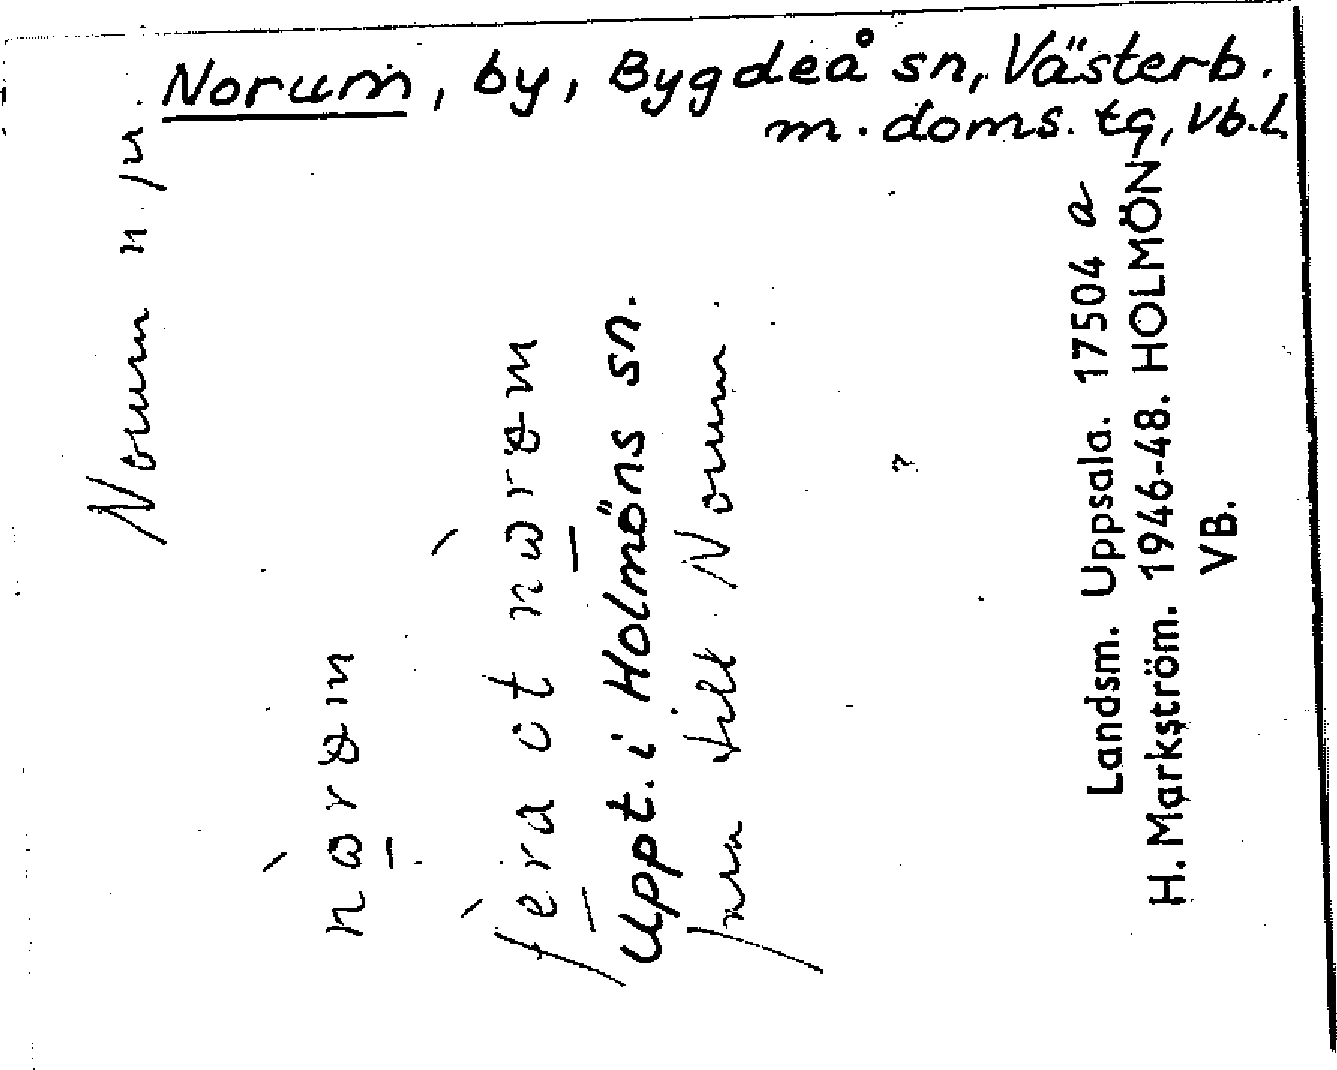 Norum, by, Bygdeå sn, Västerb.
m. doms. tg, Vb.l.
Norum n. ſn
nωrəm
fera ot nωrəm
Uppt. i Holmöns sn.
fara till Norum.
Landsm. Uppsala. 17504 a
H. Markström. 1946-48. HOLMÖN
VB.